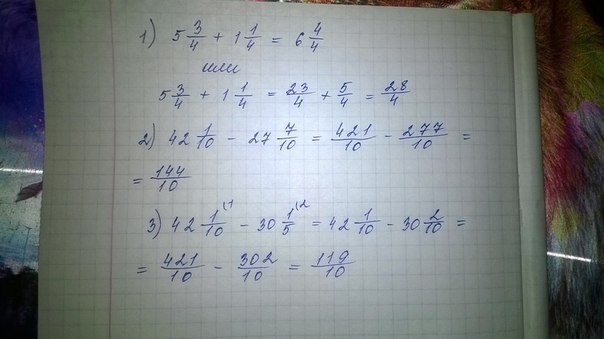 1) 5 3/4 + 1 1/4 = 6 4/4
или
5 3/4 + 1 1/4 = 23/4 + 5/4 = 28/4
2) 42 1/10 - 27 7/10 = 421/10 - 277/10 =
= 144/10
3) 42 1/10 (1 - 30 1/5 (2 = 42 1/10 - 30 2/10 =
= 421/10 - 302/10 = 119/10